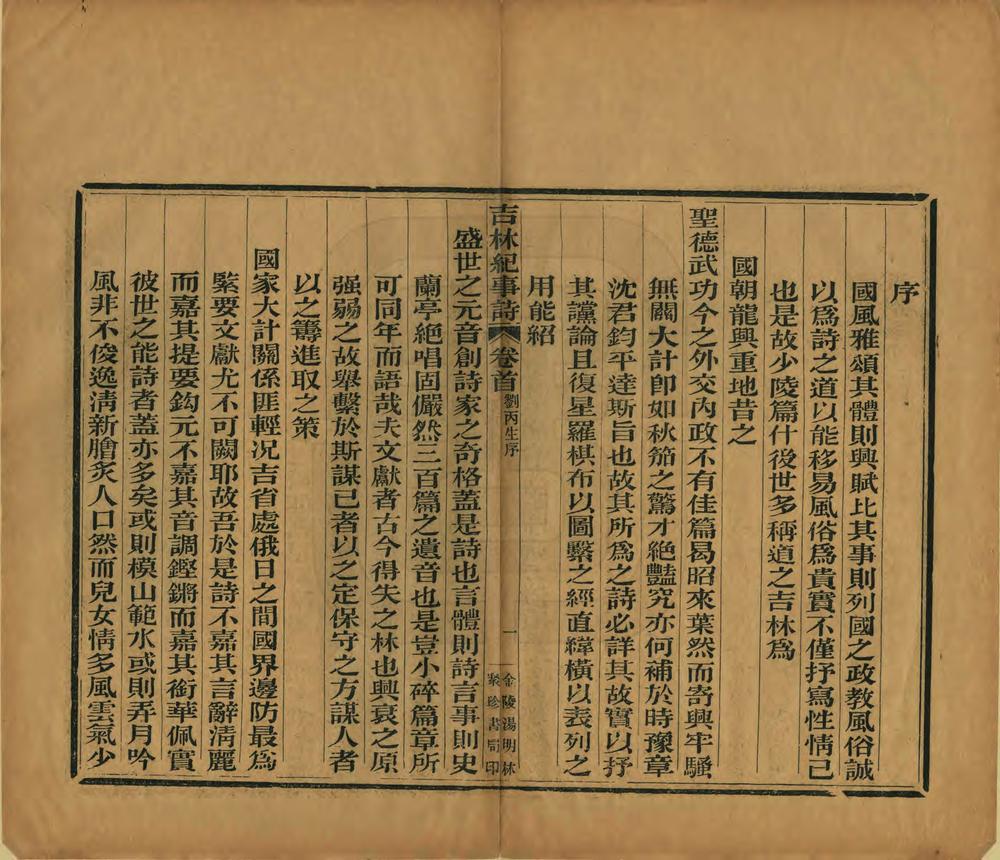 序
國風雅頌其體則興賦比其事則列國之政教風俗誠
以爲詩之道以能移易風俗爲貴實不僅抒寫性情已
也是故少陵篇什後世多稱道之吉林爲
國朝龍興重地昔之
聖德武功今之外交內政不有佳篇曷昭來葉然而寄興牢騷
無關大計卽如秋笳之驚才絕豔究亦何補於時豫章
沈君鈞平達斯旨也故其所爲之詩必詳其故實以抒
其讜論且復星羅棋布以圖繫之經直緯橫以表列之
用能紹
吉林紀事詩 卷首 劉丙生序 一 金陵湯明林聚珍書局印
盛世之元音創詩家之奇格蓋是詩也言體則詩言事則史
蘭亭絕唱固儼然三百篇之遺音也是豈小碎篇章所
可同年而語哉夫文獻者古今得失之林也興衰之原
强弱之故舉繫於斯謀已者以之定保守之方謀人者
以之籌進取之策
國家大計關係匪輕况吉省處俄日之間國界邊防最爲
緊要文獻尤不可闕耶故吾於是詩不嘉其言辭淸麗
而嘉其提要鈎元不嘉其音調鏗鏘而嘉其銜華佩實
彼世之能詩者蓋亦多矣或則模山範水或則弄月吟
風非不俊逸淸新膾炙人口然而兒女情多風雲氣少